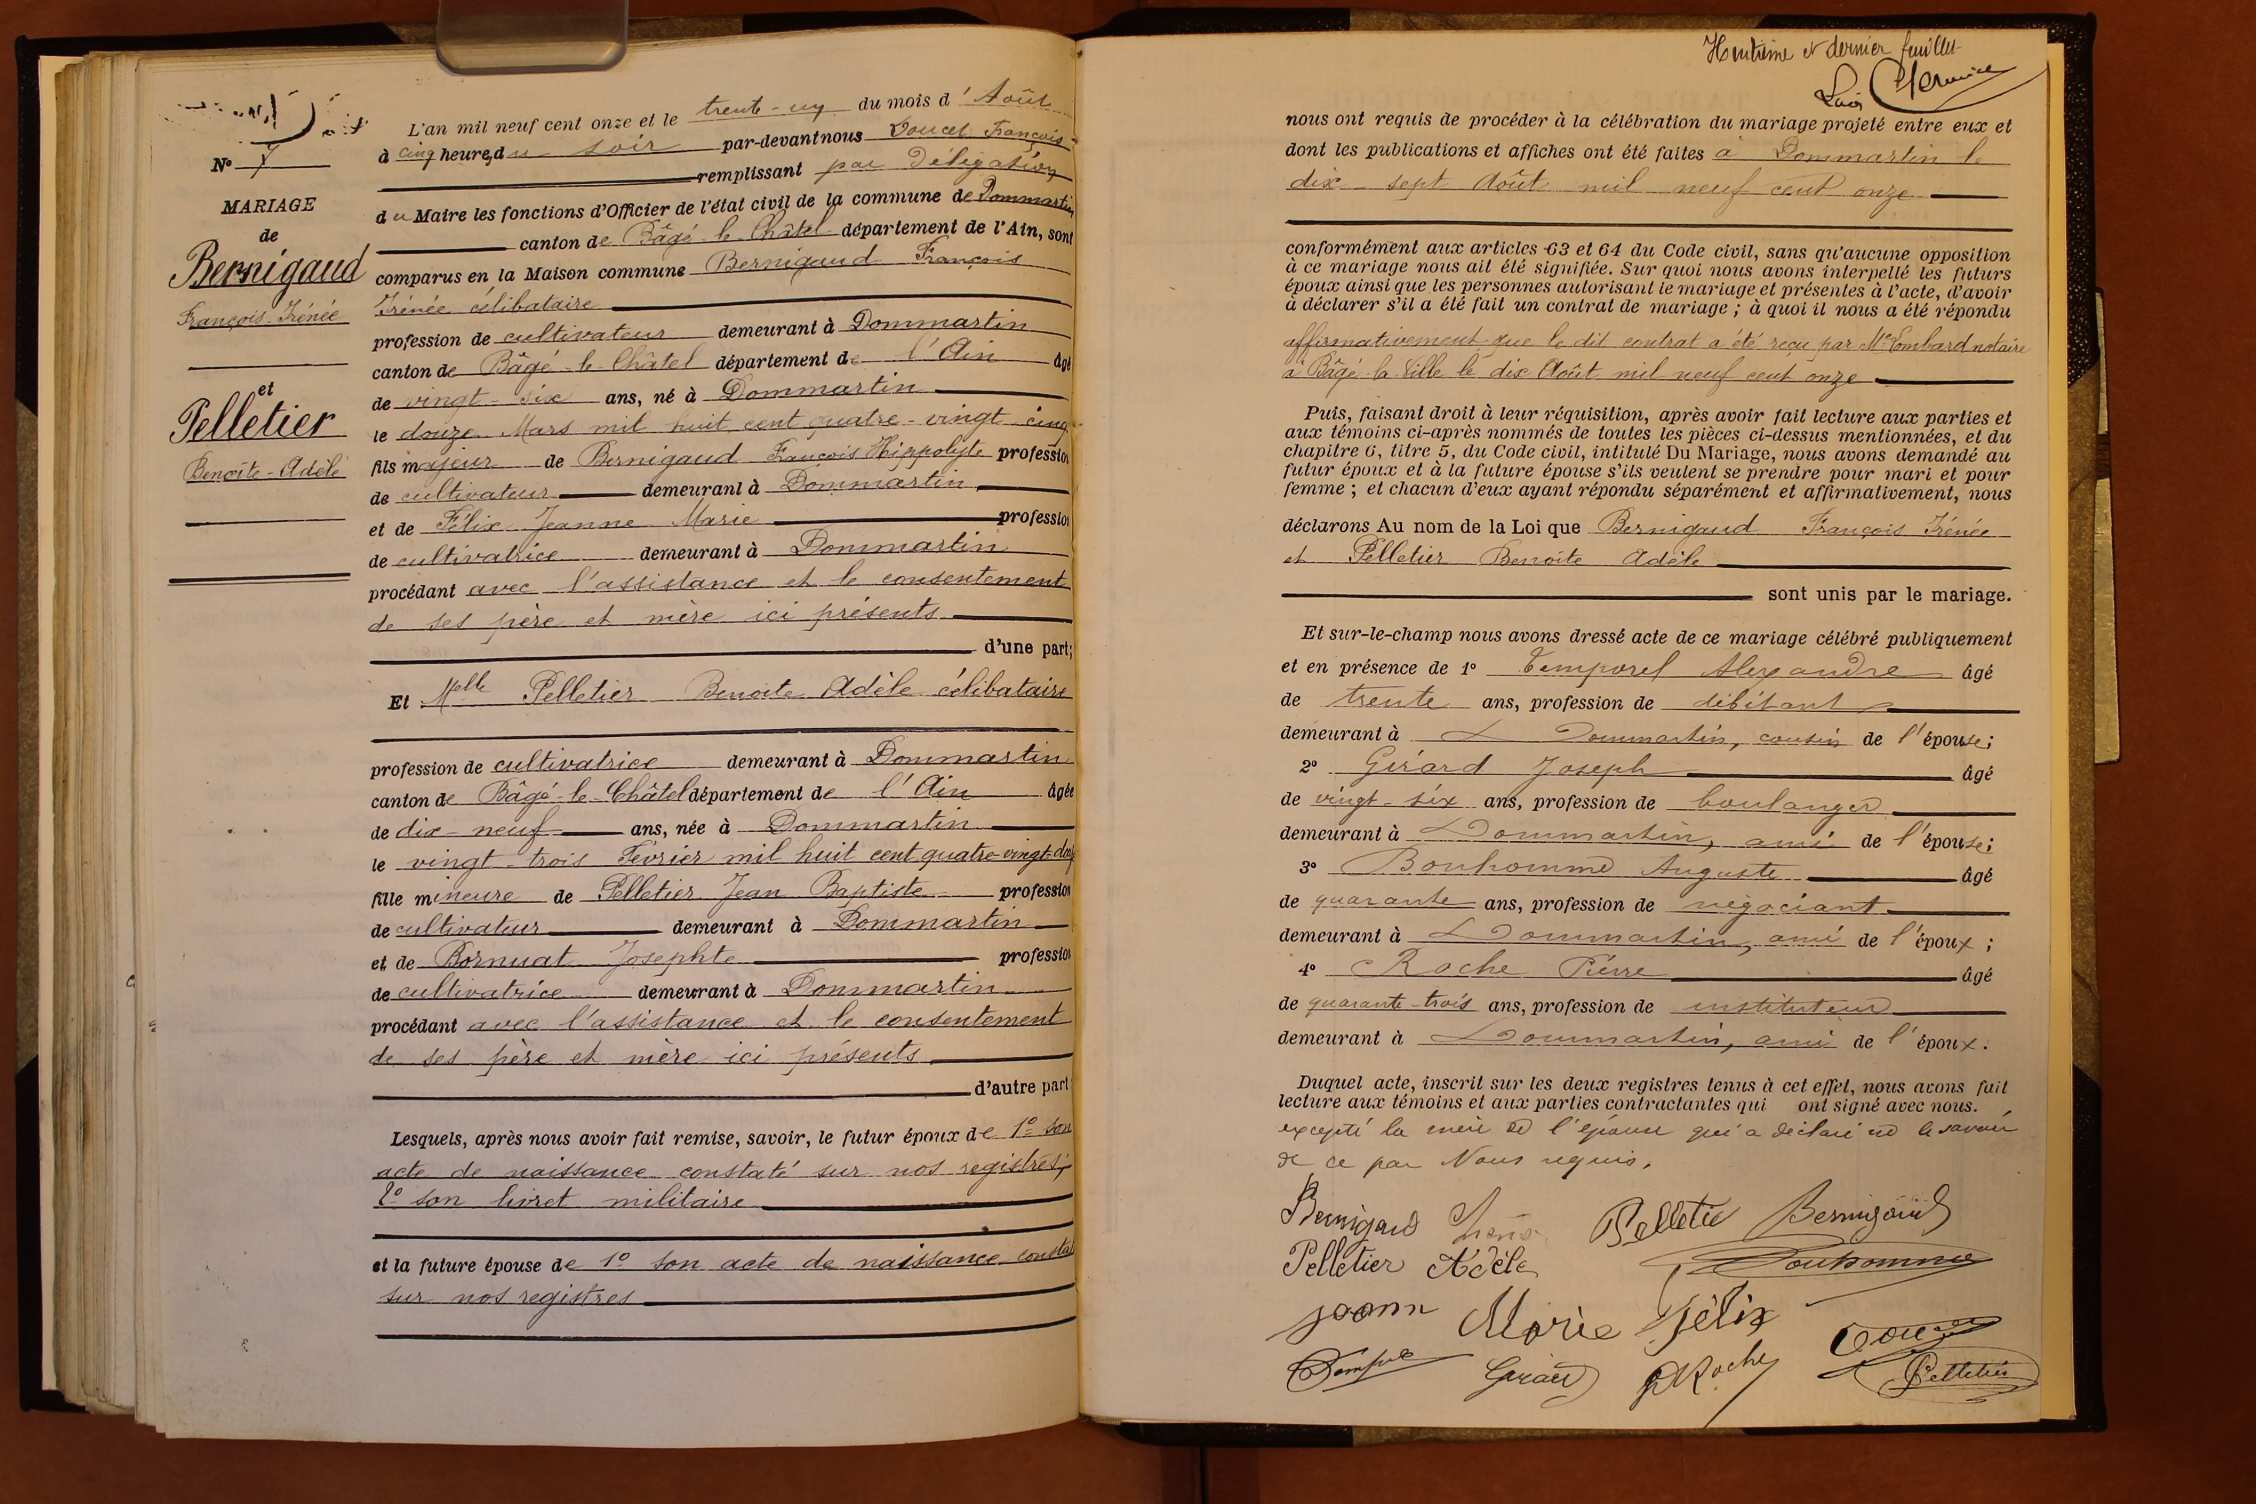 N° 7
MARIAGE
de
Bernigaud
François-Irénée
et
Pelletier
Benoîte-Adèle
L'an mil neuf cent onze et le trente-un du mois d'Août
à cinq heures du soir par-devant nous Doucet François
remplissant par Délégation
du Maire les fonctions d'Officier de l'état civil de la commune de Dommartin
canton de Bâgé-le-Châtel département de l'Ain, sont
comparus en la Maison commune Bernigaud François
Irénée célibataire
profession de cultivateur demeurant à Dommartin
canton de Bâgé-le-Châtel département de l'Ain âgé
de vingt-six ans, né à Dommartin
le douze Mars mil huit cent quatre-vingt cinq
fils majeur de Bernigaud François Hippolyte profession
de cultivateur demeurant à Dommartin
et de Félix Jeanne Marie profession
de cultivatrice demeurant à Dommartin
procédant avec l'assistance et le consentement
de ses père et mère ici présents
d'une part;
Et Melle Pelletier Benoite Adèle célibataire
profession de cultivatrice demeurant à Dommartin
canton de Bâgé-le-Châtel département de l'Ain âgée
de dix-neuf ans, née à Dommartin
le vingt-trois Février mil huit cent quatre-vingt-douze
fille mineure de Pelletier Jean Baptiste profession
de cultivateur demeurant à Dommartin
et de Bornuat Josephte profession
de cultivatrice demeurant à Dommartin
procédant avec l'assistance et le consentement
de ses père et mère ici présents
d'autre part
Lesquels, après nous avoir fait remise, savoir, le futur époux de 1° son
acte de naissance constaté sur nos registres;
2° son livret militaire
et la future épouse de 1° son acte de naissance constaté
sur nos registres
Huitième et dernier feuillet
nous ont requis de procéder à la célébration du mariage projeté entre eux et
dont les publications et affiches ont été faites à Dommartin le
dix-sept Août mil neuf cent onze
conformément aux articles 63 et 64 du Code civil, sans qu'aucune opposition
à ce mariage nous ait été signifiée. Sur quoi nous avons interpellé les futurs
époux ainsi que les personnes autorisant le mariage et présentes à l'acte, d'avoir
à déclarer s'il a été fait un contrat de mariage; à quoi il nous a été répondu
affirmativement que le dit contrat a été reçu par Me Lombard notaire
à Bâgé-la-Ville le dix Août mil neuf cent onze
Puis, faisant droit à leur réquisition, après avoir fait lecture aux parties et
aux témoins ci-après nommés de toutes les pièces ci-dessus mentionnées, et du
chapitre 6, titre 5, du Code civil, intitulé Du Mariage, nous avons demandé au
futur époux et à la future épouse s'ils veulent se prendre pour mari et pour
femme; et chacun d'eux ayant répondu séparément et affirmativement, nous
déclarons Au nom de la Loi que Bernigaud François Irénée
et Pelletier Benoite Adèle
sont unis par le mariage.
Et sur-le-champ nous avons dressé acte de ce mariage célébré publiquement
et en présence de 1° Temporel Alexandre âgé
de trente ans, profession de débitant
demeurant à Dommartin, cousin de l'épouse;
2° Gérard Joseph âgé
de vingt-six ans, profession de boulanger
demeurant à Dommartin, ami de l'épouse;
3° Bonhomme Auguste âgé
de quarante ans, profession de négociant
demeurant à Dommartin, ami de l'époux;
4° Roche Pierre âgé
de quarante-trois ans, profession de instituteur
demeurant à Dommartin, ami de l'époux.
Duquel acte, inscrit sur les deux registres tenus à cet effet, nous avons fait
lecture aux témoins et aux parties contractantes qui ont signé avec nous.
excepté la mère de l'épouse qui a déclaré ne le savoir
de ce par Nous requis.
Bernigaud Irénée Pelletier Bernigaud
Pelletier Adèle Bonhomme
Marie Félix
Gérard PRoche
Pelletier